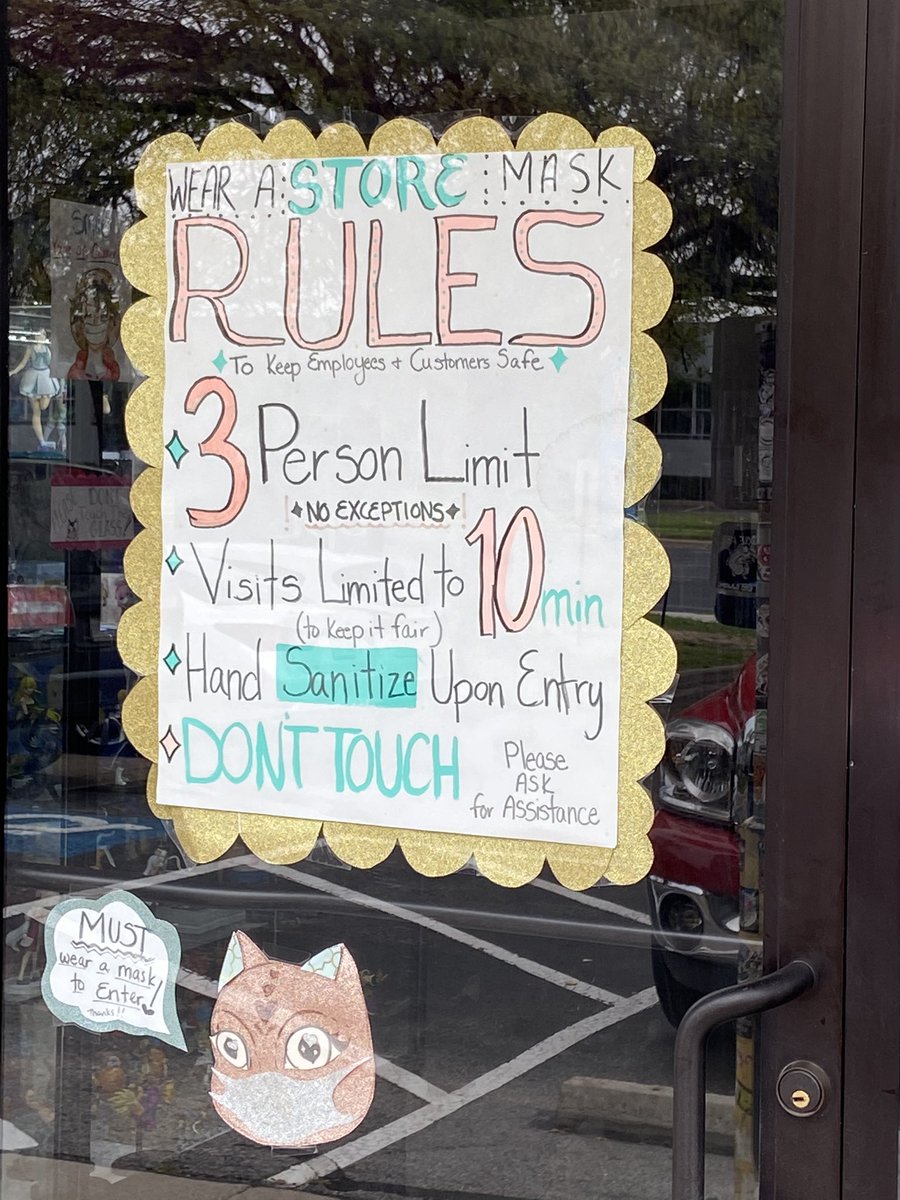 WEAR A STORE MASK
RULES
To Keep Employees + Customers Safe
3 Person Limit
NO EXCEPTIONS
Visits Limited to 10 min
(to keep it fair)
Hand Sanitize Upon Entry
DON'T TOUCH
Please
ASK
for Assistance
MUST
wear a mask
to Enter!
Thanks!!